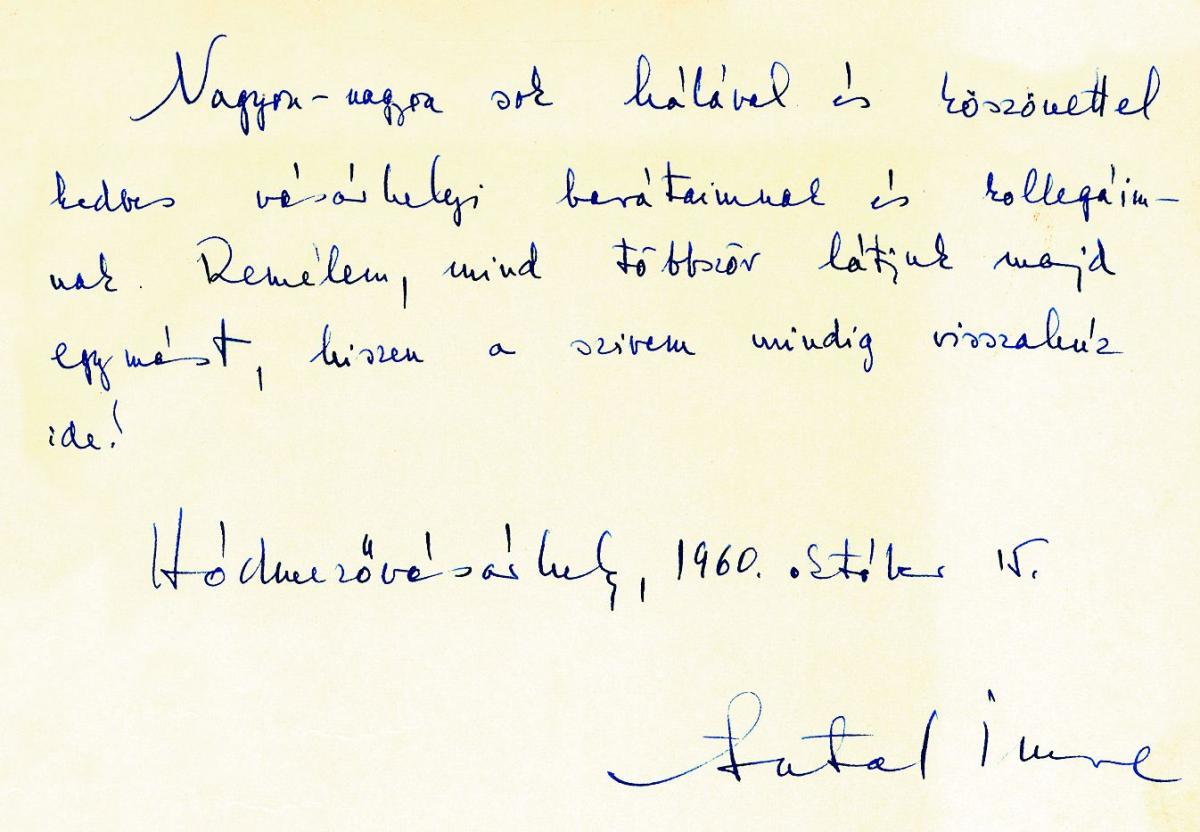 Nagyon-nagyon sok hálával és köszönettel
kedves vásárhelyi barátaimnak és kollegáim-
nak. Remélem, mind többször látjuk majd
egymást, hiszen a szivem mindig visszahúz
ide!
Hódmezővásárhely, 1960. október 15.
Antal Imre